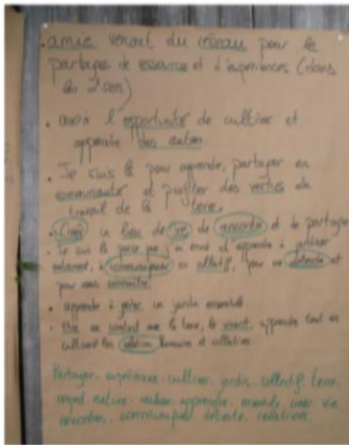 . amie venant du réseau pour le
partage de essences et d'expériences (dans
les 2 sens)
. avoir l'opportunité de cultiver et
apprendre des autres
. Je suis là pour apprendre, partager en
communauté et profiter des vertus du
travail de la terre.
. Créer un lieu de vie de rencontre et de partage
. Je suis là parce que j'ai envie d'apprendre à jardiner
, à communiquer en collectif, pour me détendre et
pour nous connaître
. apprendre à gérer un jardin ensemble
. être en contact avec la terre, le vivant, apprendre tout en
cultivant les relations humaines et collectives
Partager. expériences. cultiver. jardin. collectif. terre.
respect. nature. apprendre. ensemble. créer. vie
rencontre. communiquer. détente. relation.